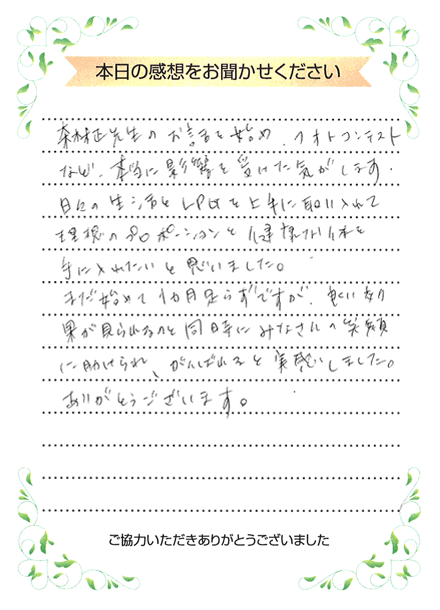 本日の感想をお聞かせください
先生のお話を始め、フォトコンテスト
など、本当に影響を受けた気がします。
日々の生活を上手に取り入れて
理想のプロポーションと健康な体を
手に入れたいと思いました。
まだ始めて1カ月足らずですが、
果が見られるのと同時にみなさんの笑顔
に助けられ、がんばれると実感しました。
ありがとうございます。
ご協力いただきありがとうございました